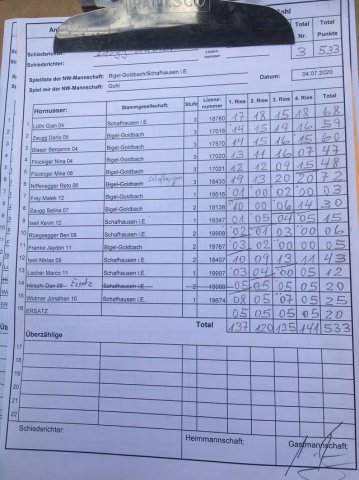 Total Nr. Total Punkte
Schiedsrichter: Lizenz-
Schiedsrichter: nummer 3 533
Spielliste der NW-Mannschaft: Bigel-Goldbach/Schafhausen i.E. Datum: 04.07.2020
Spiel mit der NW-Mannschaft: Gohl
Hornusser: Stammgesellschaft: Stufe Lizenz-nummer 1. Ries 2. Ries 3. Ries 4. Ries Total
1 Lüthi Gian 04 Schafhausen i.E. 3 18780 17 18 15 18 68
2 Zaugg Dario 05 Bigel-Goldbach 3 17018 14 15 14 16 59
3 Blaser Benjamin 04 Bigel-Goldbach 3 17570 14 15 16 15 60
4 Flückiger Nina 04 Bigel-Goldbach 3 17020 13 11 16 07 47
5 Flückiger Mike 06 Bigel-Goldbach 3 17021 12 12 09 15 48
6 Niffenegger Reto 06 Schafhausen 3 18433 14 18 20 20 72
7 Frey Malek 12 Bigel-Goldbach 1 19616 01 00 02 00 03
8 Zaugg Selina 07 Bigel-Goldbach 2 18138 10 00 06 14 30
9 Iseli Kevin 12 Schafhausen i.E. 1 19347 01 05 04 05 15
10 Rüegsegger Ben 09 Schafhausen i.E. 2 19908 02 01 03 00 06
11 Franke Jaydon 11 Bigel-Goldbach 2 19797 03 02 00 00 05
12 Iseli Niklas 09 Schafhausen i.E. 2 18407 10 09 13 11 43
13 Locher Marco 11 Schafhausen i.E. 1 19907 03 04 00 05 12
14 Hirschi Dan 09 Ersatz Schafhausen i.E. 2 19909 05 05 05 05 20
15 Widmer Jonathan 10 Schafhausen i.E. 1 19674 08 05 07 05 25
16 ERSATZ 05 05 05 05 20
Total 137 120 135 141 533
Überzählige
17
18
19
20
21
22
Schiedsrichter: Heimmannschaft: Gastmannschaft: